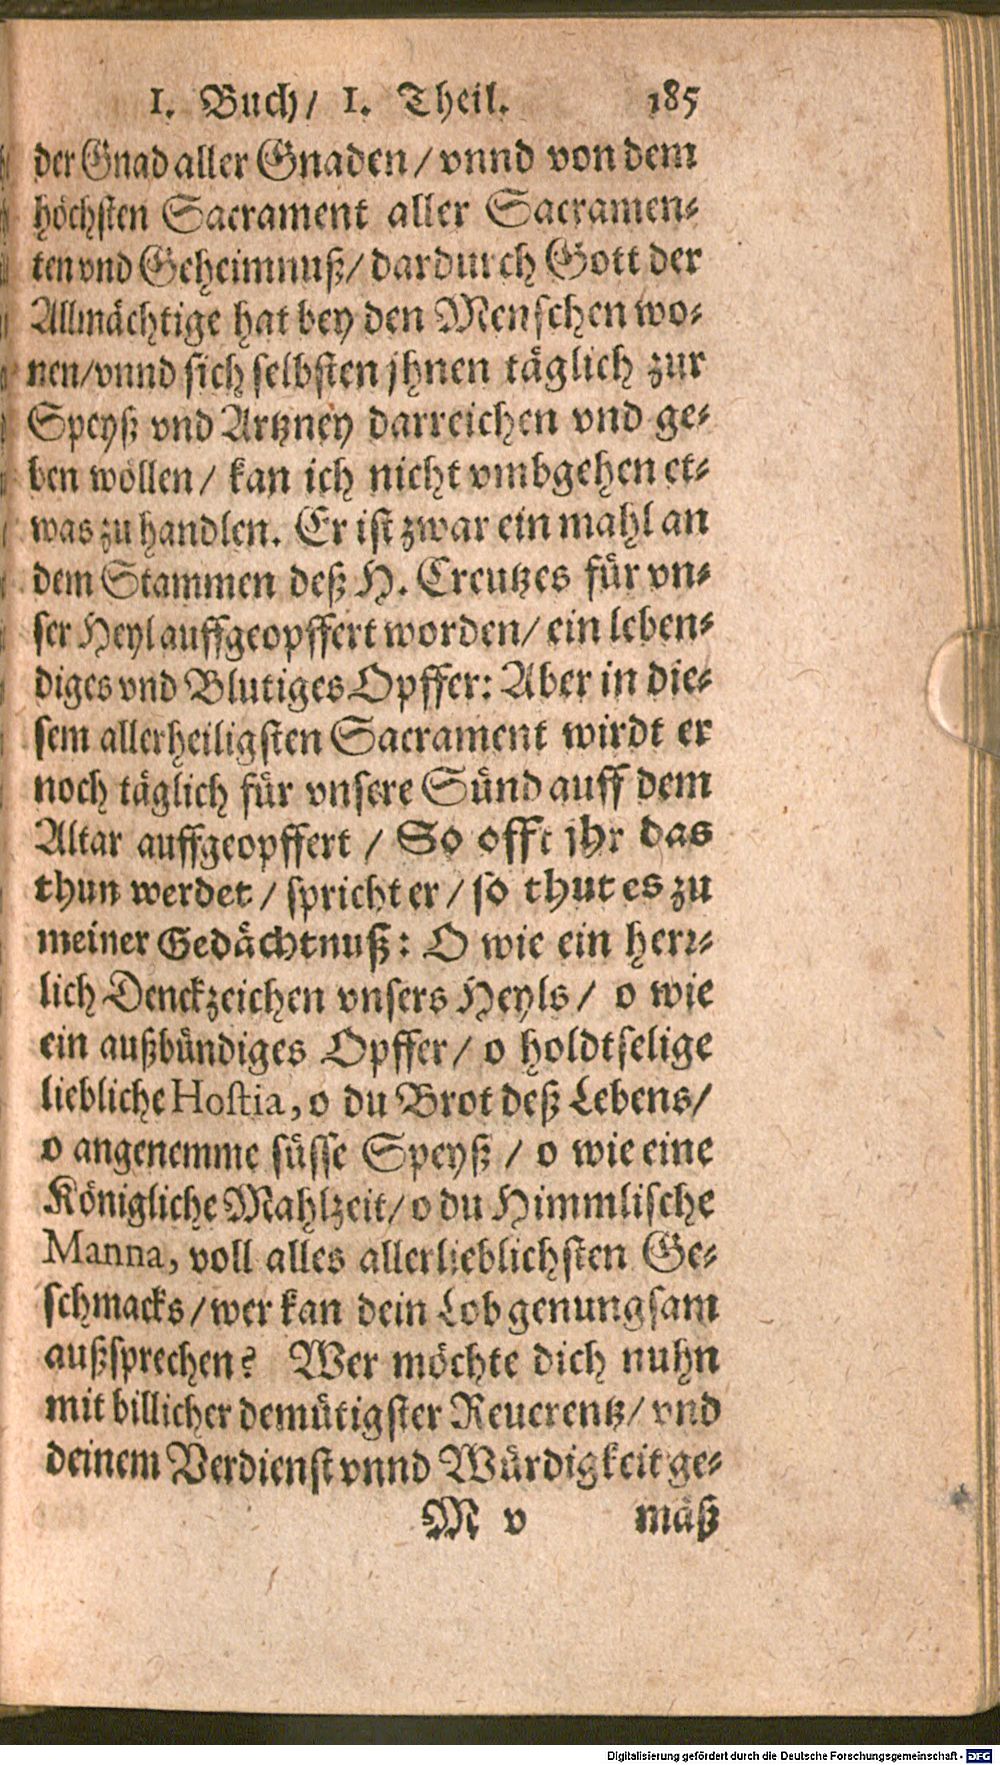 1. Buch/ 1. Theil. 185
der Gnad aller Gnaden/ vnnd von dem
höchsten Sacrament aller Sacramen-
ten vnd Geheimnuß/ dardurch Gott der
Allmächtige hat bey den Menschen wo-
nen/ vnnd sich selbsten jhnen täglich zur
Speyß vnd Artzney darreichen vnd ge-
ben wöllen/ kan ich nicht vmbgehen et-
was zu handlen. Er ist zwar ein mahl an
dem Stammen deß H. Creutzes für vn-
ser Heyl auffgeopffert worden/ ein leben-
diges vnd Blutiges Opffer: Aber in die-
sem allerheiligsten Sacrament wirdt er
noch täglich für vnsere Sünd auff dem
Altar auffgeopffert / So offt jhr das
thun werdet / spricht er / so thut es zu
meiner Gedächtnuß: O wie ein herr-
lich Denckzeichen vnsers Heyls / o wie
ein außbündiges Opffer/ o holdtselige
liebliche Hostia, o du Brot deß Lebens/
o angenemme süsse Speyß / o wie eine
Königliche Mahlzeit/ o du Himmlische
Manna, voll alles allerlieblichsten Ge-
schmacks/ wer kan dein Lob genungsam
außsprechen? Wer möchte dich nuhn
mit billicher demütigster Reuerentz/ vnd
deinem Verdienst vnnd Würdigkeit ge-
M v mäß
Digitalisierung gefördert durch die Deutsche Forschungsgemeinschaft - DFG